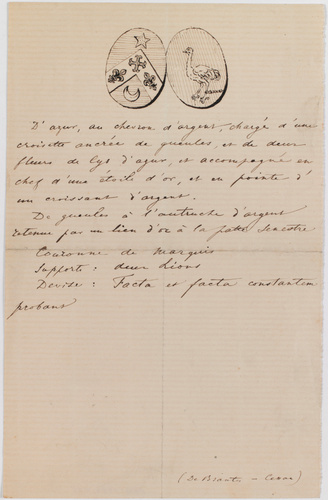 D'azur, au chevron d'argent, chargé d'une
croisette ancrée de gueules, et de deux
fleurs de lys d'azur, et accompagné en
chef d'une étoile d'or, et en pointe d'
un croissant d'argent.
De gueules à l'autruche d'argent
retenue par un lien d'or à la patte senestre
Couronne de Marquis
Supports : deux Lions
Devise : Facta et facta constantem
probant
(De